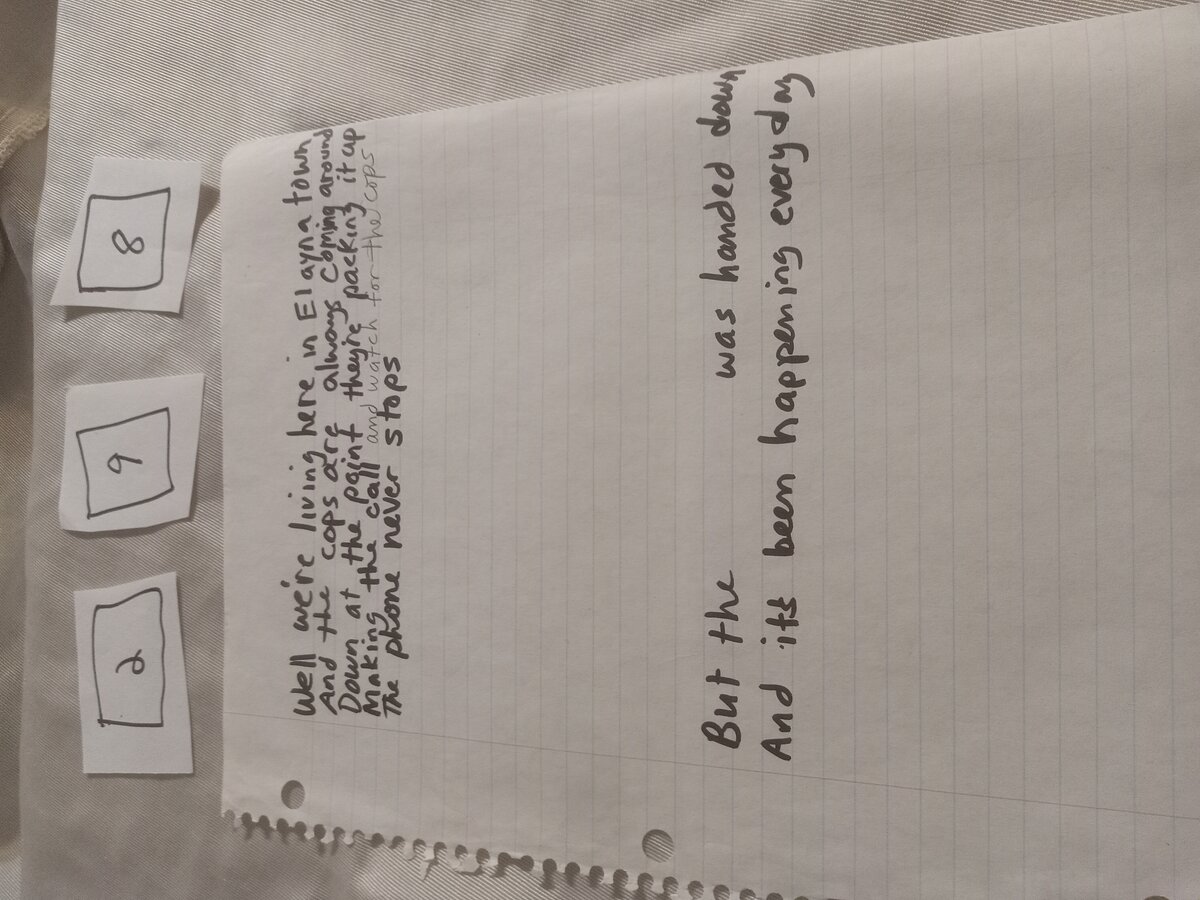 2 9 8
Well we're living here in Elayna town
And the cops are always coming around
Down at the point they're packing it up
Making the call and watch for the cops
The phone never stops
But the was handed down
And its been happening everyday